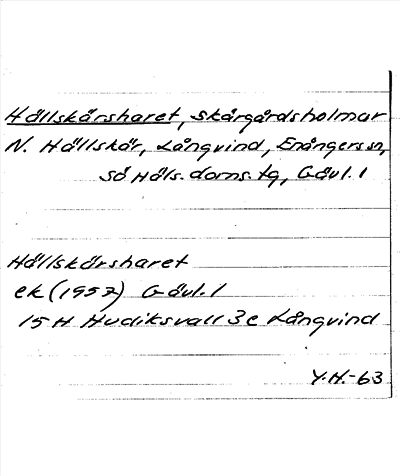 Hällskärsharet, Skärgårdsholmar
N. Hällskär, Långvind, Enångers sn,
Sö Häls. doms. tg, Gävl. l
Hällskärsharet
ek (1957) Gävl. l
15 H Hudiksvall 3c Långvind
Y.H.-63